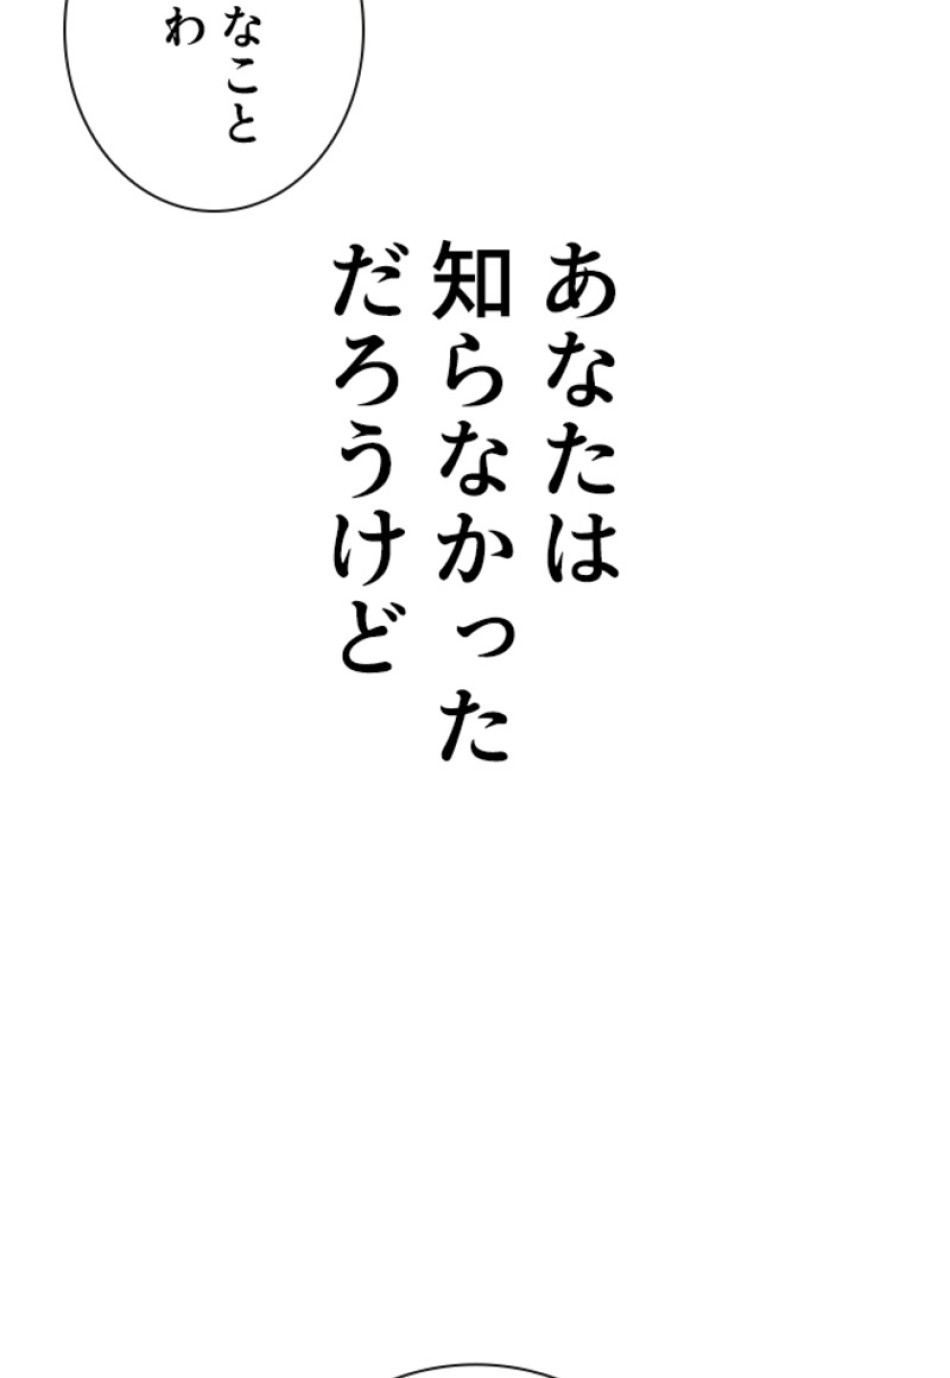 なこと
わ
あなたは
知らなかった
だろうけど